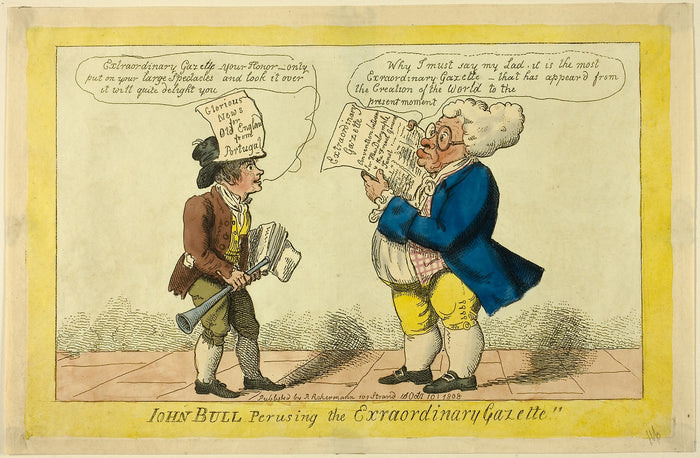 Extraordinary Gazette your Honor - only
put on your large Spectacles and look it over
it will quite delight you
Why I must say my Lad, it is the most
Extraordinary Gazette - that has appear'd from
the Creation of the World to the
present moment
Glorious
News
for
Old England
from
Portugal
Extraordinary
Gazette
Convention between
Published by R Ackermann 101 Strand Octr 10 1808
JOHN BULL Perusing the Exraordinary Gazette"